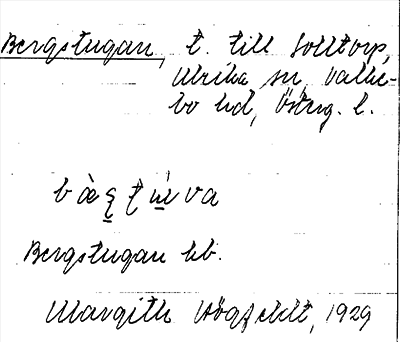 Bergstugan, t. till Solltorp,
Ulrika sn, Valke-
bo hd, Österg. l.
Bergstugan hb.
Margith Högfeldt, 1929